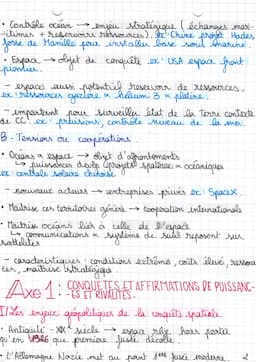 • Contrôle océan → enjeu stratégique (échanges mar-
itimes + réservoirs ressources). ex: Chine projet Hades
fosse de Manille pour installer base sous marine.
• Espace → objet de conquête ex: USA espace front
pionnier.
- espace aussi potentiel réservoir de ressources.
ex: ressources gazière ∝ helium 3 ∝ platine.
- important pour surveiller état de la Terre contexte
de CC, ex: prévisions, contrôle niveau de la mer.
B - Tensions ou coopérations.
• Océans ∝ espace → objet d'affrontements
↳ puissances dvlp (projets) spatiale ∝ océaniques
ex: centrale solaire chinoise.
- nouveaux acteurs → entreprises privés ex: SpaceX.
• Maîtrise ces territoires génère → coopération internationale
• Maîtrise océans liés à celle de l'espace
↳ communications ∝ système de suivi reposent sur
satellites
- caractéristiques: conditions extrême, coûts élevé, ressour
ces, maîtrise stratégique.
Axe 1: CONQUÊTES ET AFFIRMATIONS DE PUISSANC-
-ES ET RIVALITÉS.
I/ Les enjeux géopolitiques de la conquête spatiale.
• Antiquité - XXe siècle → espace rêvé hors portée
qu'en que première fusée décolle.
• L'Allemagne Nazie met au point 1ère fusée moderne. 2